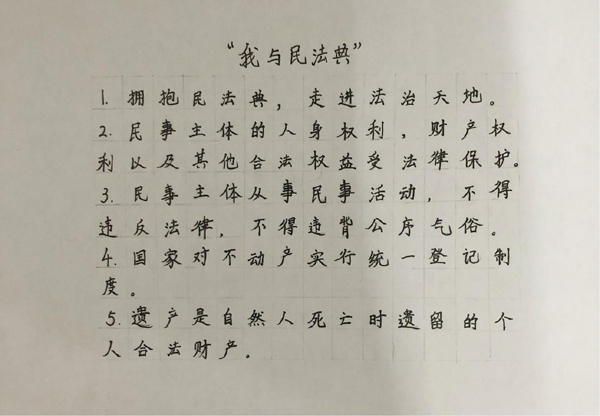 “我与民法典”
1. 拥抱民法典，走进法治天地。
2. 民事主体的人身权利，财产权
利以及其他合法权益受法律保护。
3. 民事主体从事民事活动，不得
违反法律，不得违背公序气俗。
4. 国家对不动产实行统一登记制
度。
5. 遗产是自然人死亡时遗留的个
人合法财产。